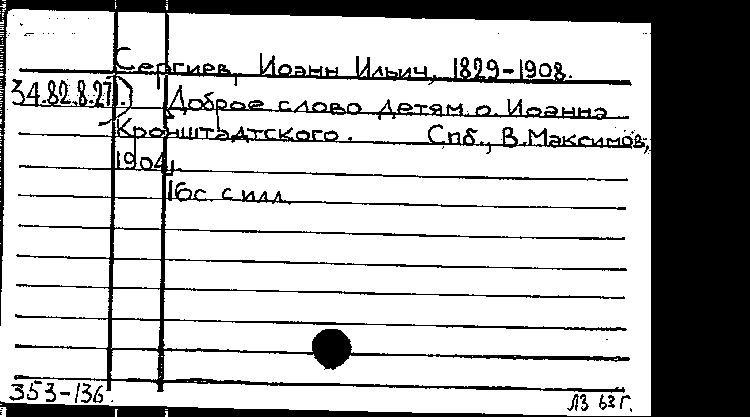 Сергиев, Иоанн Ильич, 1829-1908.
34.82.8.27. Доброе слово детям о. Иоанна
Кронштадтского. Спб., В. Максимов,
1904.
16с. с илл.
353-136. ЛЗ 63 г.